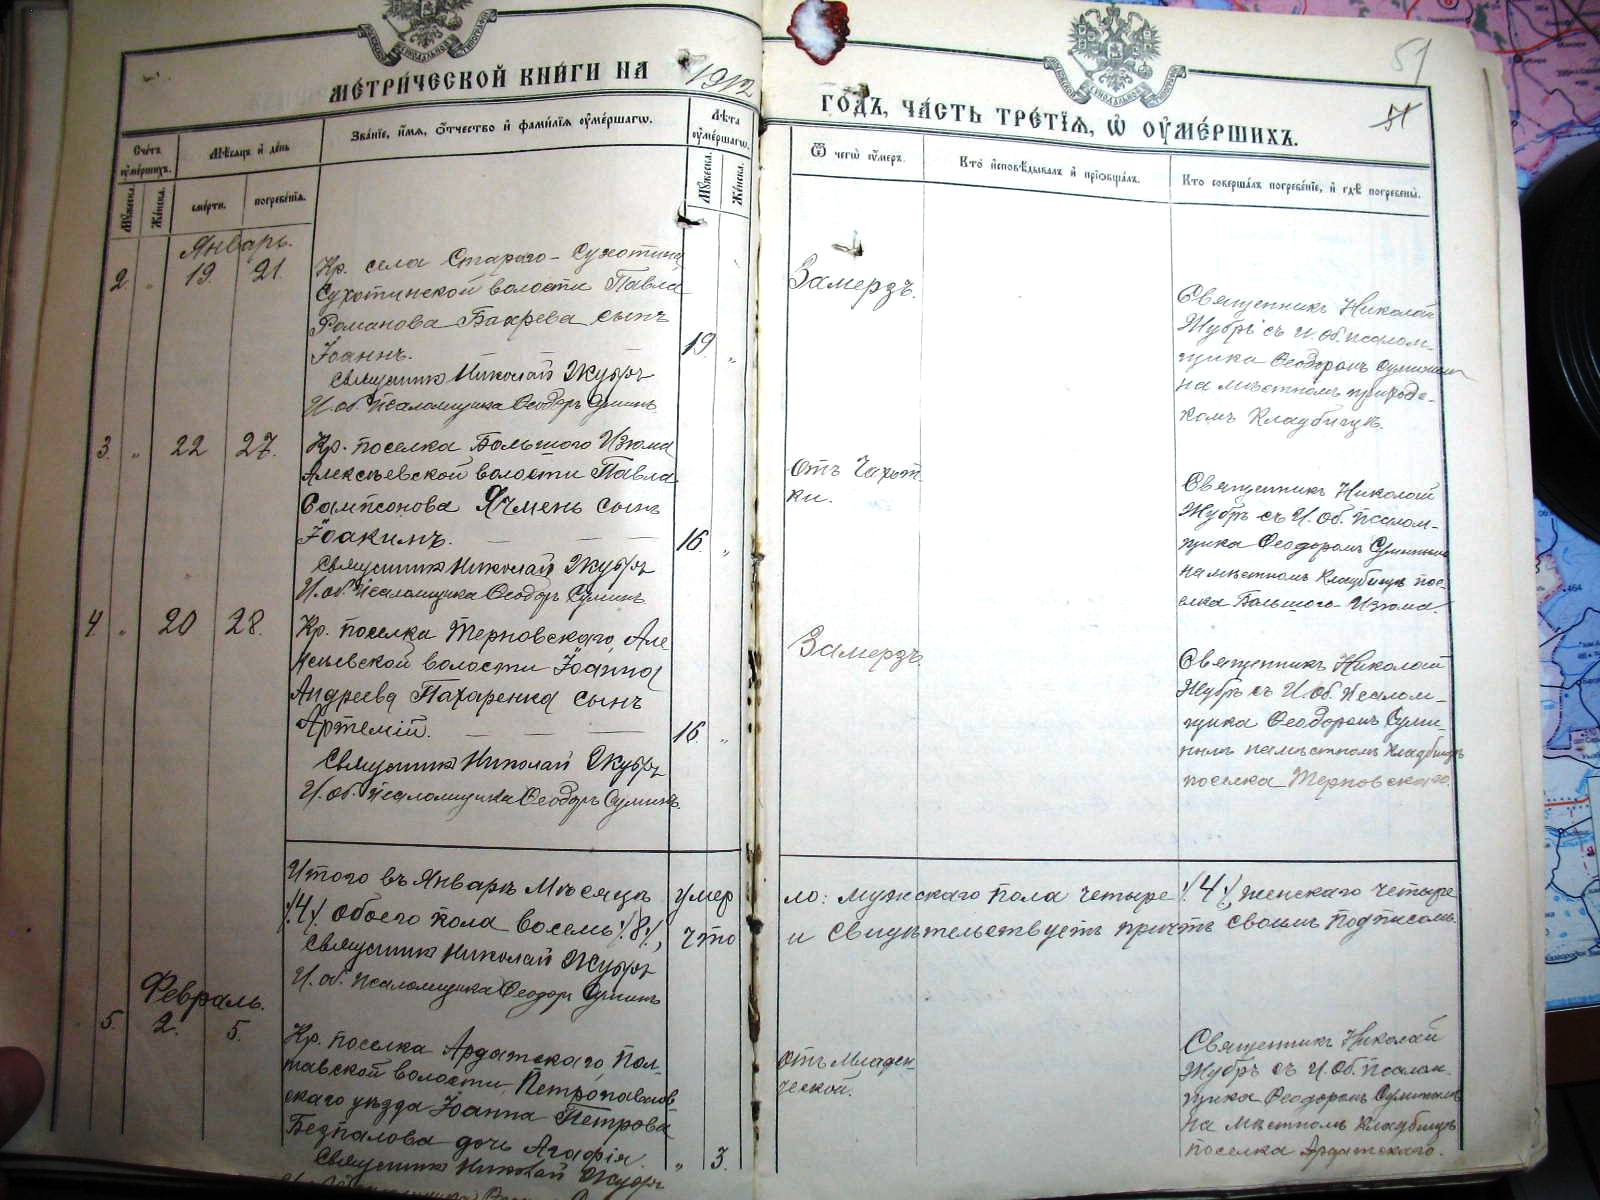 МЕТРИ́ЧЕСКОЙ КНИ́ГИ НА 1912
ГО́ДЪ, ЧА́СТЬ ТРЕ́ТІѦ, Ѡ ОУМЕ́РШИХЪ.
51
51
Сче́тъ оуме́ршихъ.
Мѣ́сѧцъ и де́нь
Зва́нїе, и́мѧ, ѻ́тчество и фами́лїѧ оуме́ршагѡ.
Лѣ́та оуме́ршагѡ.
Ѿ чегѡ̀ оу́меръ.
Кто̀ и́сповѣ́дывалъ и прїѡбща́лъ.
Кто соверша́лъ погребе́нїе, и гдѣ̀ погребены̀.
Мꙋ́жеска.
Же́нска.
сме́рти.
погребе́нїѧ.
Мꙋ́жеска.
Же́нска.
Январь.
2 " 19. 21.
Кр. села Стараго-Сухотина
Сухотинской волости Павла
Романова Бахрева сынъ
Іоаннъ. 19 "
Священникъ Николай Жубръ
И. об. псаломщика Ѳеодоръ Суминъ
Замерзъ.
Священникъ Николай
Жубръ съ И. об. псалом-
щика Ѳеодоромъ Суминым
на мѣстномъ приходс-
комъ кладбищѣ.
3. " 22 27.
Кр. поселка Большого Изюма
Алексѣевской волости Павла
Сампсонова Ячмень сынъ
Іоакимъ. 16. "
Священникъ Николай Жубръ
И. об. псаломщика Ѳеодоръ Суминъ
Отъ Чахот
ки.
Священникъ Николай
Жубръ съ И. Об. псалом-
щика Ѳеодоромъ Суминым
на мѣстномъ кладбищѣ пос-
елка Большого-Изюма.
4 " 20 28.
Кр. поселка Терновскаго, Але
ксѣевской волости Іоанна
Андреева Пахаренка сынъ
Артемій. 16. "
Священникъ Николай Жубръ
И. об. псаломщика Ѳеодоръ Суминъ.
Замерзъ
Священникъ Николай
Жубръ съ И. Об. Псалом-
щика Ѳеодоромъ Суми
нымъ на мѣстномъ кладбищѣ
поселка Терновскаго.
Итого въ Январѣ Мѣсяцѣ умер
ло: мужскаго пола четыре /4/, женскаго четыре
/4/. Обоего пола восемь /8/, что
и свидѣтельствуетъ причтъ своимъ подписомъ.
Священникъ Николай Жубръ
И. об. псаломщика Ѳеодоръ Суминъ
Февраль.
5. 2. 5.
Кр. поселка Ардатскаго Пол-
тавской волости Петропавлов
скаго уѣзда Іоанна Петрова
Безпалова дочь Агафія. " 3.
Священникъ Николай Жубръ
Отъ Младен-
ческой.
Священникъ Николай
Жубръ съ И. Об. Псалом-
щика Ѳеодоромъ Суминымъ
на мѣстномъ кладбищѣ
поселка Ардатскаго.